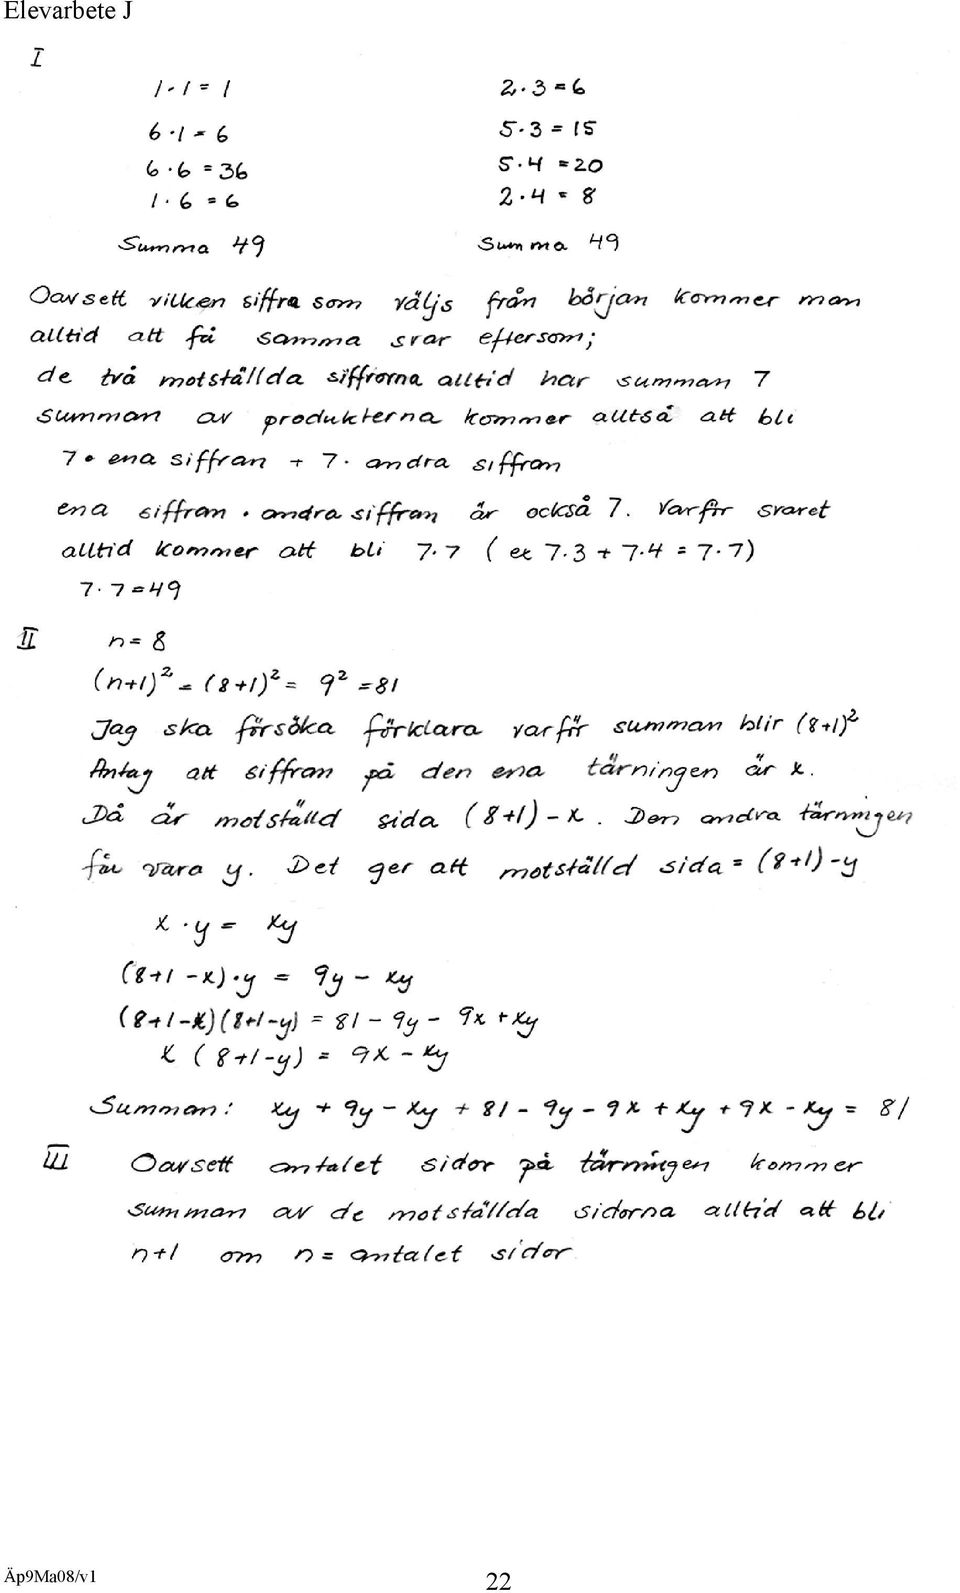 Elevarbete J
I
1·1 = 1
6·1 = 6
6·6 = 36
1·6 = 6
Summa 49
2·3 = 6
5·3 = 15
5·4 = 20
2·4 = 8
Summa 49
Oavsett vilken siffra som väljs från början kommer man
alltid att få samma svar eftersom;
de två motställda siffrorna alltid har summan 7
summan av produkterna kommer alltså att bli
7· ena siffran + 7· andra siffran
ena siffran · andra siffran är också 7. Varför svaret
alltid kommer att bli 7·7 (ex 7·3 + 7·4 = 7·7)
7·7 = 49
II n = 8
(n+1)² = (8+1)² = 9² = 81
Jag ska försöka förklara varför summan blir (8+1)²
Antag att siffran på den ena tärningen är x.
Då är motställd sida (8+1) - x. Den andra tärningen
får vara y. Det ger att motställd sida = (8+1) - y
x · y = xy
(8+1 - x)·y = 9y - xy
(8+1-x)(8+1-y) = 81 - 9y - 9x + xy
x (8+1-y) = 9x - xy
Summan: xy + 9y - xy + 81 - 9y - 9x + xy + 9x - xy = 81
III Oavsett antalet sidor på tärningen kommer
summan av de motställda sidorna alltid att bli
n+1 om n = antalet sidor
Äp9Ma08/v1
22